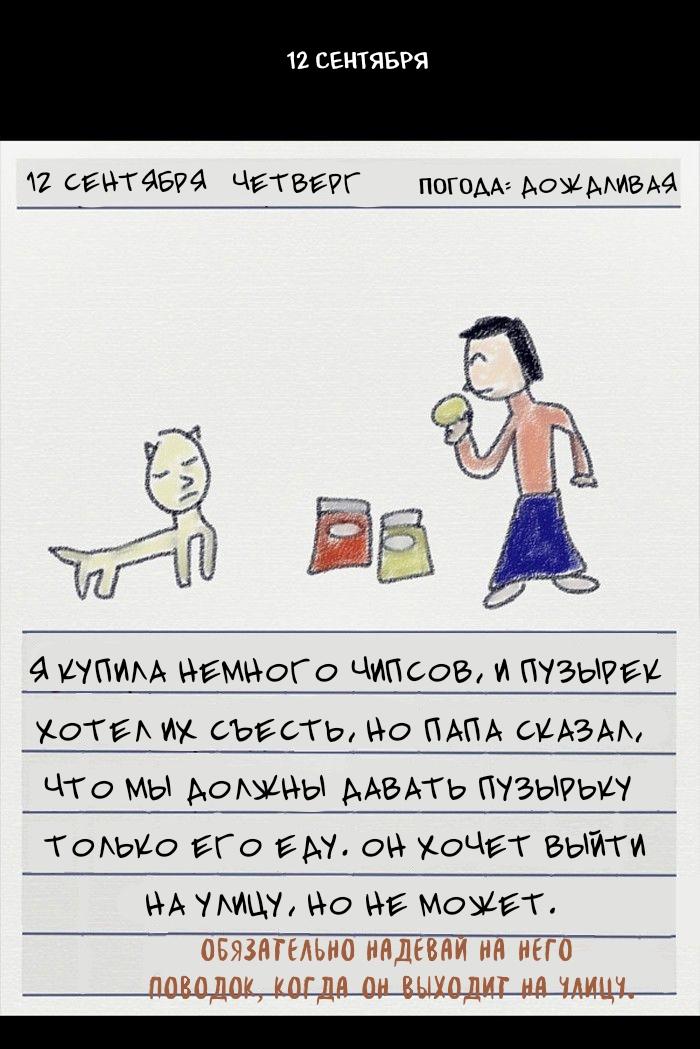 12 СЕНТЯБРЯ
12 СЕНТЯБРЯ ЧЕТВЕРГ ПОГОДА: ДОЖДЛИВАЯ
Я КУПИЛА НЕМНОГО ЧИПСОВ, И ПУЗЫРЕК
ХОТЕЛ ИХ СЪЕСТЬ, НО ПАПА СКАЗАЛ,
ЧТО МЫ ДОЛЖНЫ ДАВАТЬ ПУЗЫРЬКУ
ТОЛЬКО ЕГО ЕДУ. ОН ХОЧЕТ ВЫЙТИ
НА УЛИЦУ, НО НЕ МОЖЕТ.
ОБЯЗАТЕЛЬНО НАДЕВАЙ НА НЕГО
ПОВОДОК, КОГДА ОН ВЫХОДИТ НА УЛИЦУ.